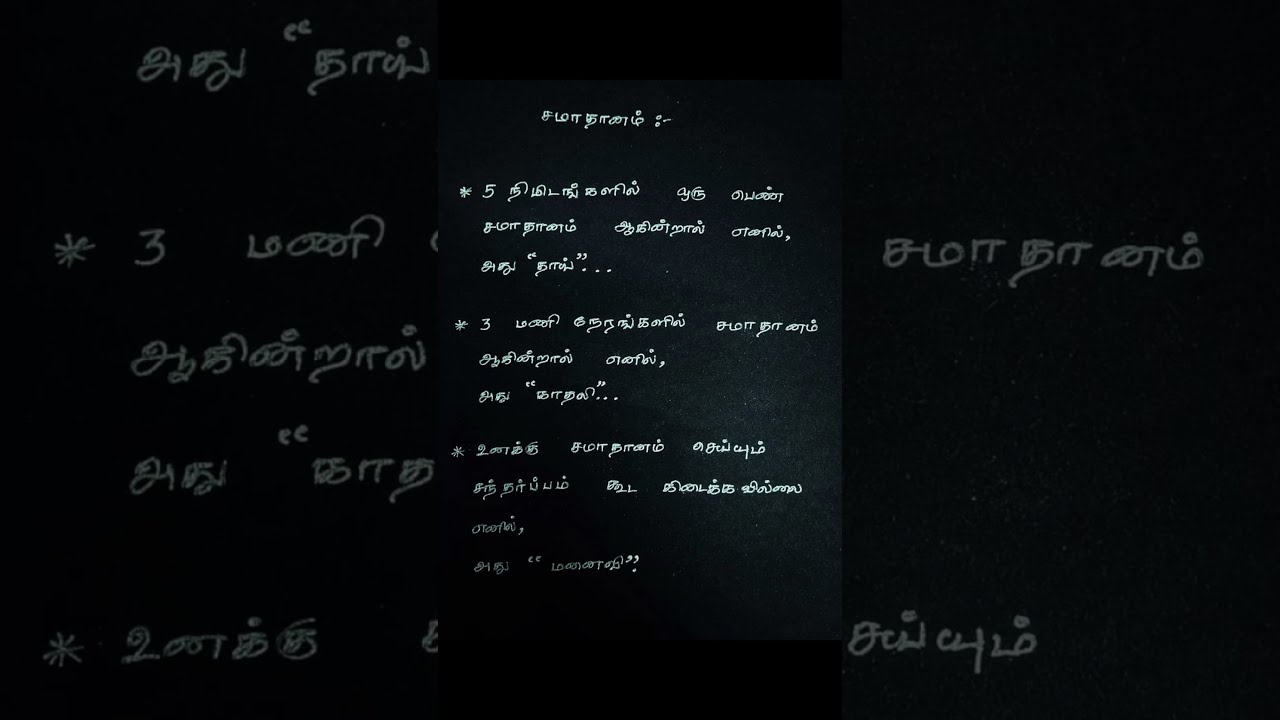 சமாதானம் :-
* 5 நிமிடங்களில் ஒரு பெண்
சமாதானம் ஆகின்றால் எனில்,
அது "தாய்"...
* 3 மணி நேரங்களில் சமாதானம்
ஆகின்றால் எனில்,
அது "காதலி"...
* உனக்கு சமாதானம் செய்யும்
சந்தர்ப்பம் கூட கிடைக்கவில்லை
எனில்,
அது "மனைவி".